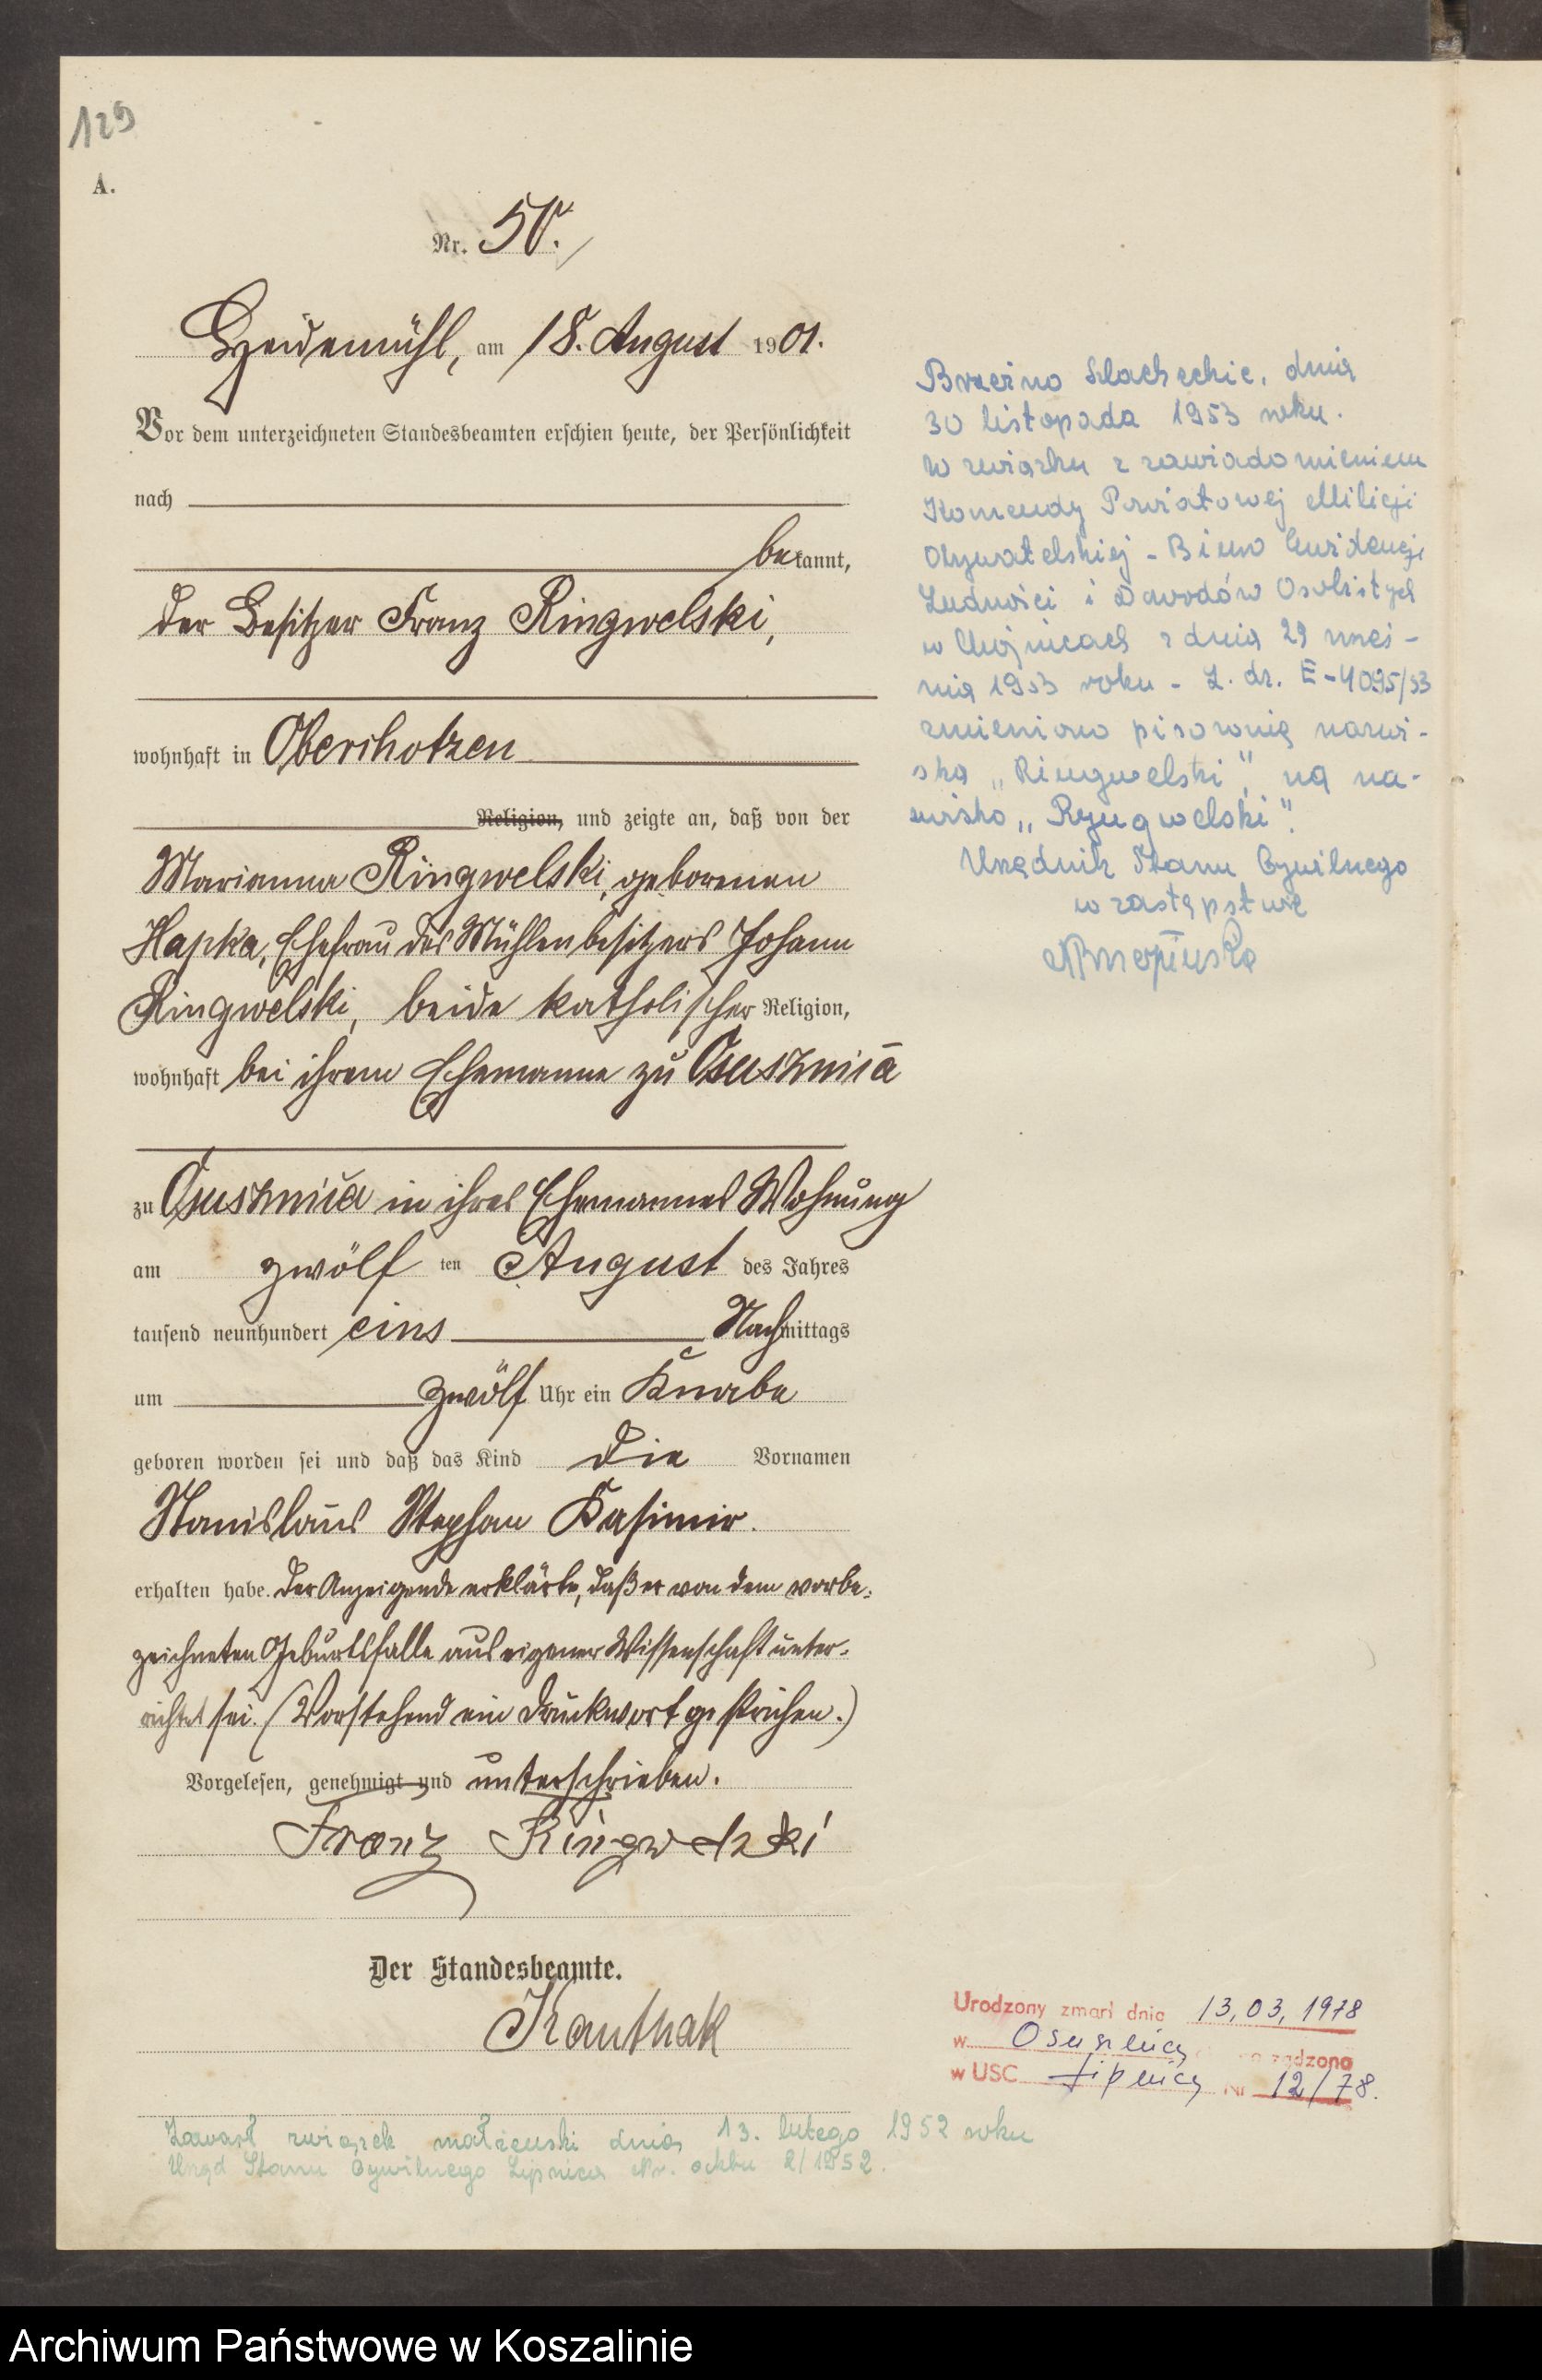 129
A.
Nr. 50.
Heidemühl, am 18. August 1901.
Vor dem unterzeichneten Standesbeamten erschien heute, der Persönlichkeit
nach
bekannt,
der Besitzer Franz Ringwelski,
wohnhaft in Oberchotzen
Religion, und zeigte an, daß von der
Marianna Ringwelski, geborenen
Hapka, Ehefrau des Mühlenbesitzers Johann
Ringwelski, beide katholischer Religion,
wohnhaft bei ihrem Ehemanne zu Osusznica
zu Osusznica in ihres Ehemannes Wohnung
am zwölf ten August des Jahres
tausend neunhundert eins Nachmittags
um zwölf Uhr ein Knabe
geboren worden sei und daß das Kind die Vornamen
Stanislaus Stephan Kasimir.
erhalten habe. Der Anzeigende erklärte, daß er von dem vorbe-
zeichneten Geburtsfalle aus eigener Wissenschaft unter-
richtet sei. (Vorstehend ein Druckwort gestrichen.)
Vorgelesen, genehmigt und unterschrieben.
Franz Ringwelski
Der Standesbeamte.
Kauthak
Brzeźno Szlacheckie, dnia
30 listopada 1953 roku.
W związku z zawiadomieniem
Komendy Powiatowej Milicji
Obywatelskiej - Biuro Ewidencji
Ludności i Dowodów Osobistych
w Chojnicach z dnia 29 wrześ-
nia 1953 roku - L. dz. E-4095/53
zmieniono pisownię nazwi-
ska „Ringwelski", na na-
zwisko „Ryngwelski".
Urzędnik Stanu Cywilnego
w zastępstwie
Urodzony zmarł dnia 13,03,1978
w Osusznicy
w USC Lipnicy Nr 12/78.
Zawarł związek małżeński dnia 13. lutego 1952 roku
Urząd Stanu Cywilnego Lipnica Nr. 2/1952.
Archiwum Państwowe w Koszalinie